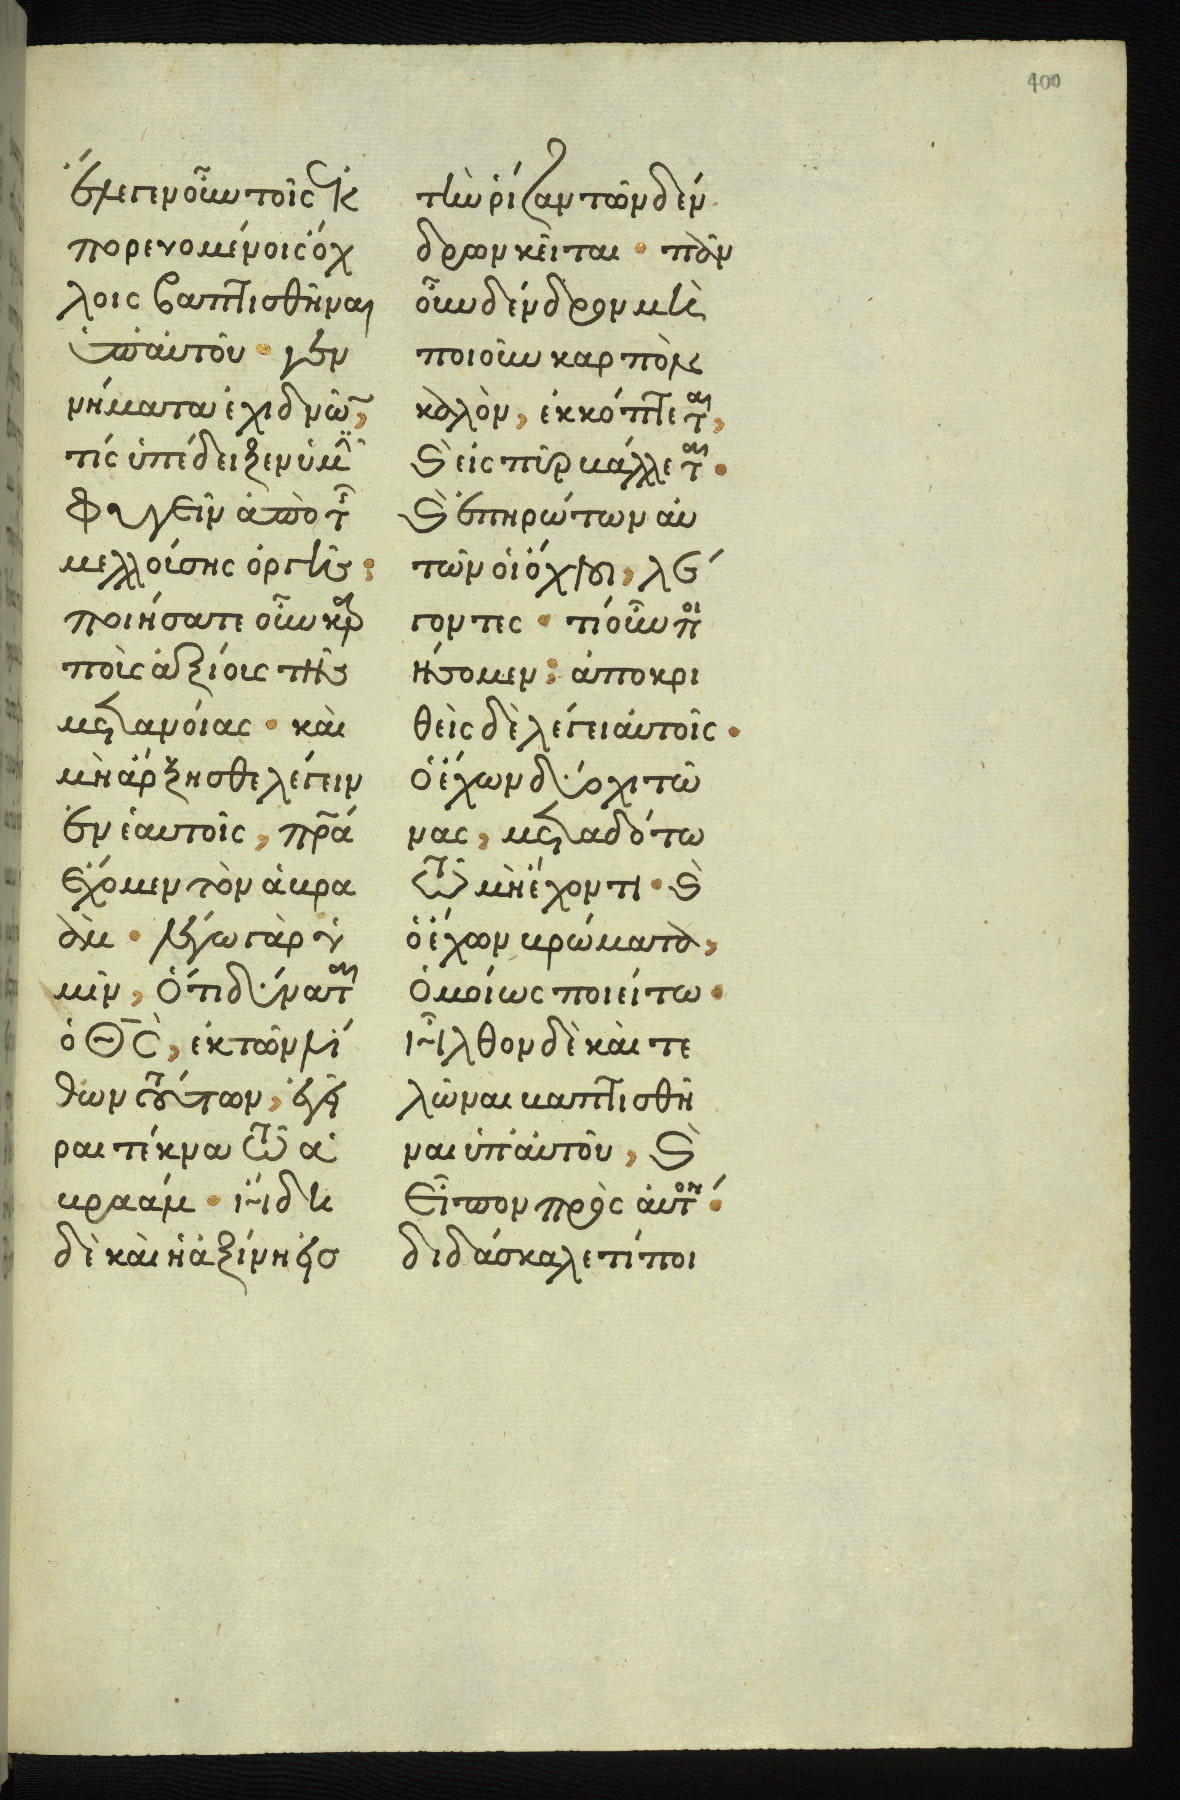 400
ἔλεγεν οὖν τοῖς ἐκ
πορευομένοις ὄχ
λοις βαπτισθῆναι
ὑπ' αὐτοῦ · γεν
νήματα ἐχιδνῶ,
τίς ὑπέδειξεν ὑμῖ
φυγεῖν ἀπὸ τ
μελλούσης ὀργῆς ;
ποιήσατε οὖν καρ
ποὺς ἀξίους τῆς
μετανοίας · καὶ
μὴ ἄρξησθε λέγειν
ἐν ἑαυτοῖς, πρα
ἔχομεν τὸν ἀβρα
ὰμ · λέγω γὰρ ὑ
μῖν, ὅτι δύναται
ὁ θς, ἐκ τῶν λί
θων τούτων, ἐγεῖ
ραι τέκνα τῶ ἀ
βραάμ · ἤδη
δὲ καὶ ἡ ἀξίνη πρὸσ
τὴν ῥίζαν τῶν δέν
δρων κεῖται · πᾶν
οὖν δένδρον μὴ
ποιοῦν καρπὸν
καλὸν, ἐκκόπτεται,
καὶ εἰς πῦρ βάλλεται ·
καὶ ἐπηρώτων αὐ
τῶν οἱ ὄχλοι, λέ
γοντες · τί οὖν ποι
ήσομεν ; ἀποκρι
θεὶς δὲ λέγει αὐτοῖς ·
ὁ ἔχων δύο χιτῶ
νας, μεταδότω
τῶ μὴ ἔχοντι · καὶ
ὁ ἔχων βρώματα,
ὁμοίως ποιείτω ·
ἦλθον δὲ καὶ τε
λῶναι βαπτισθῆ
ναι ὑπ' αὐτοῦ, καὶ
εἶπον πρὸς αὐτόν ·
διδάσκαλε τί ποι